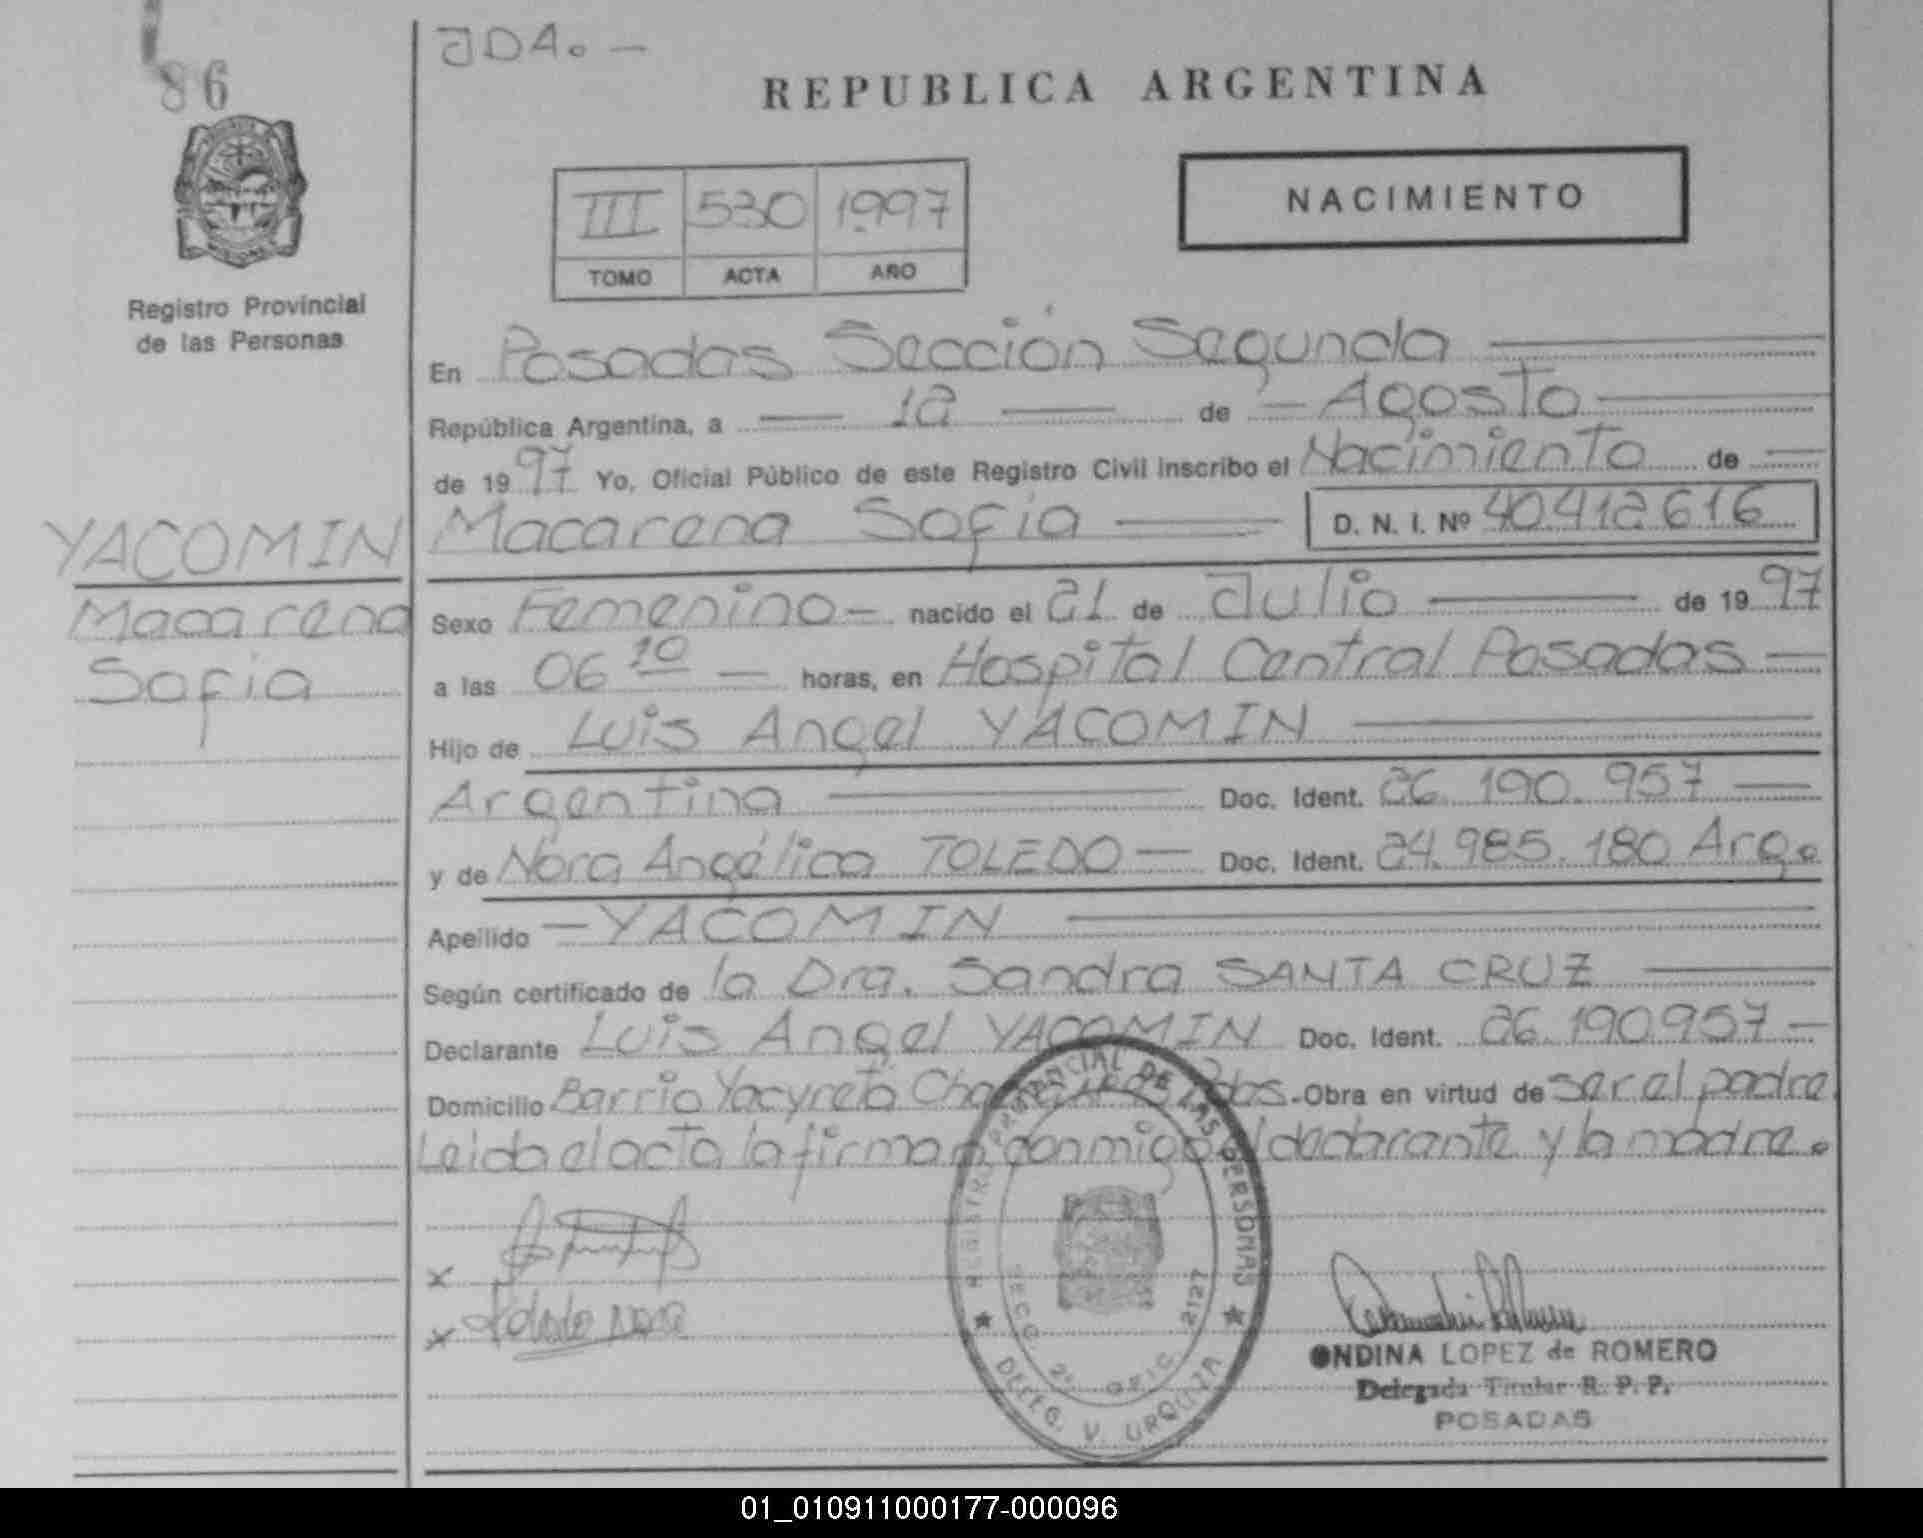 JDA. —
86
REPUBLICA ARGENTINA
III 530 1997
TOMO ACTA AÑO
NACIMIENTO
Registro Provincial
de las Personas
En Posadas Sección Segunda
República Argentina, a — 12 — de — Agosto —
de 1997 Yo, Oficial Público de este Registro Civil inscribo el Nacimiento de —
YACOMIN
Macarena Sofia — D. N. I. Nº 40.412.616
Macarena
Sofia
Sexo Femenino — nacido el 21 de Julio — de 1997
a las 06 10 — horas, en Hospital Central Posadas —
Hijo de Luis Angel YACOMIN
Argentina — Doc. Ident. 26.190.957 —
y de Nora Angélica TOLEDO — Doc. Ident. 24.985.180 Arg.
Apellido — YACOMIN
Según certificado de la Dra. Sandra SANTA CRUZ —
Declarante Luis Angel YACOMIN Doc. Ident. 26.190.957 —
Domicilio Barrio Yacyretá Pdas. - Obra en virtud de ser el padre
Leida el acta la firman conmigo el declarante y la madre.
REGISTRO PROVINCIAL DE LAS PERSONAS
SECC. 2ª OFIC. 2127
DELEG. V. URQUIZA
x
x Toledo Nora
ONDINA LOPEZ de ROMERO
Delegada Titular R. P. P.
POSADAS
01_010911000177-000096